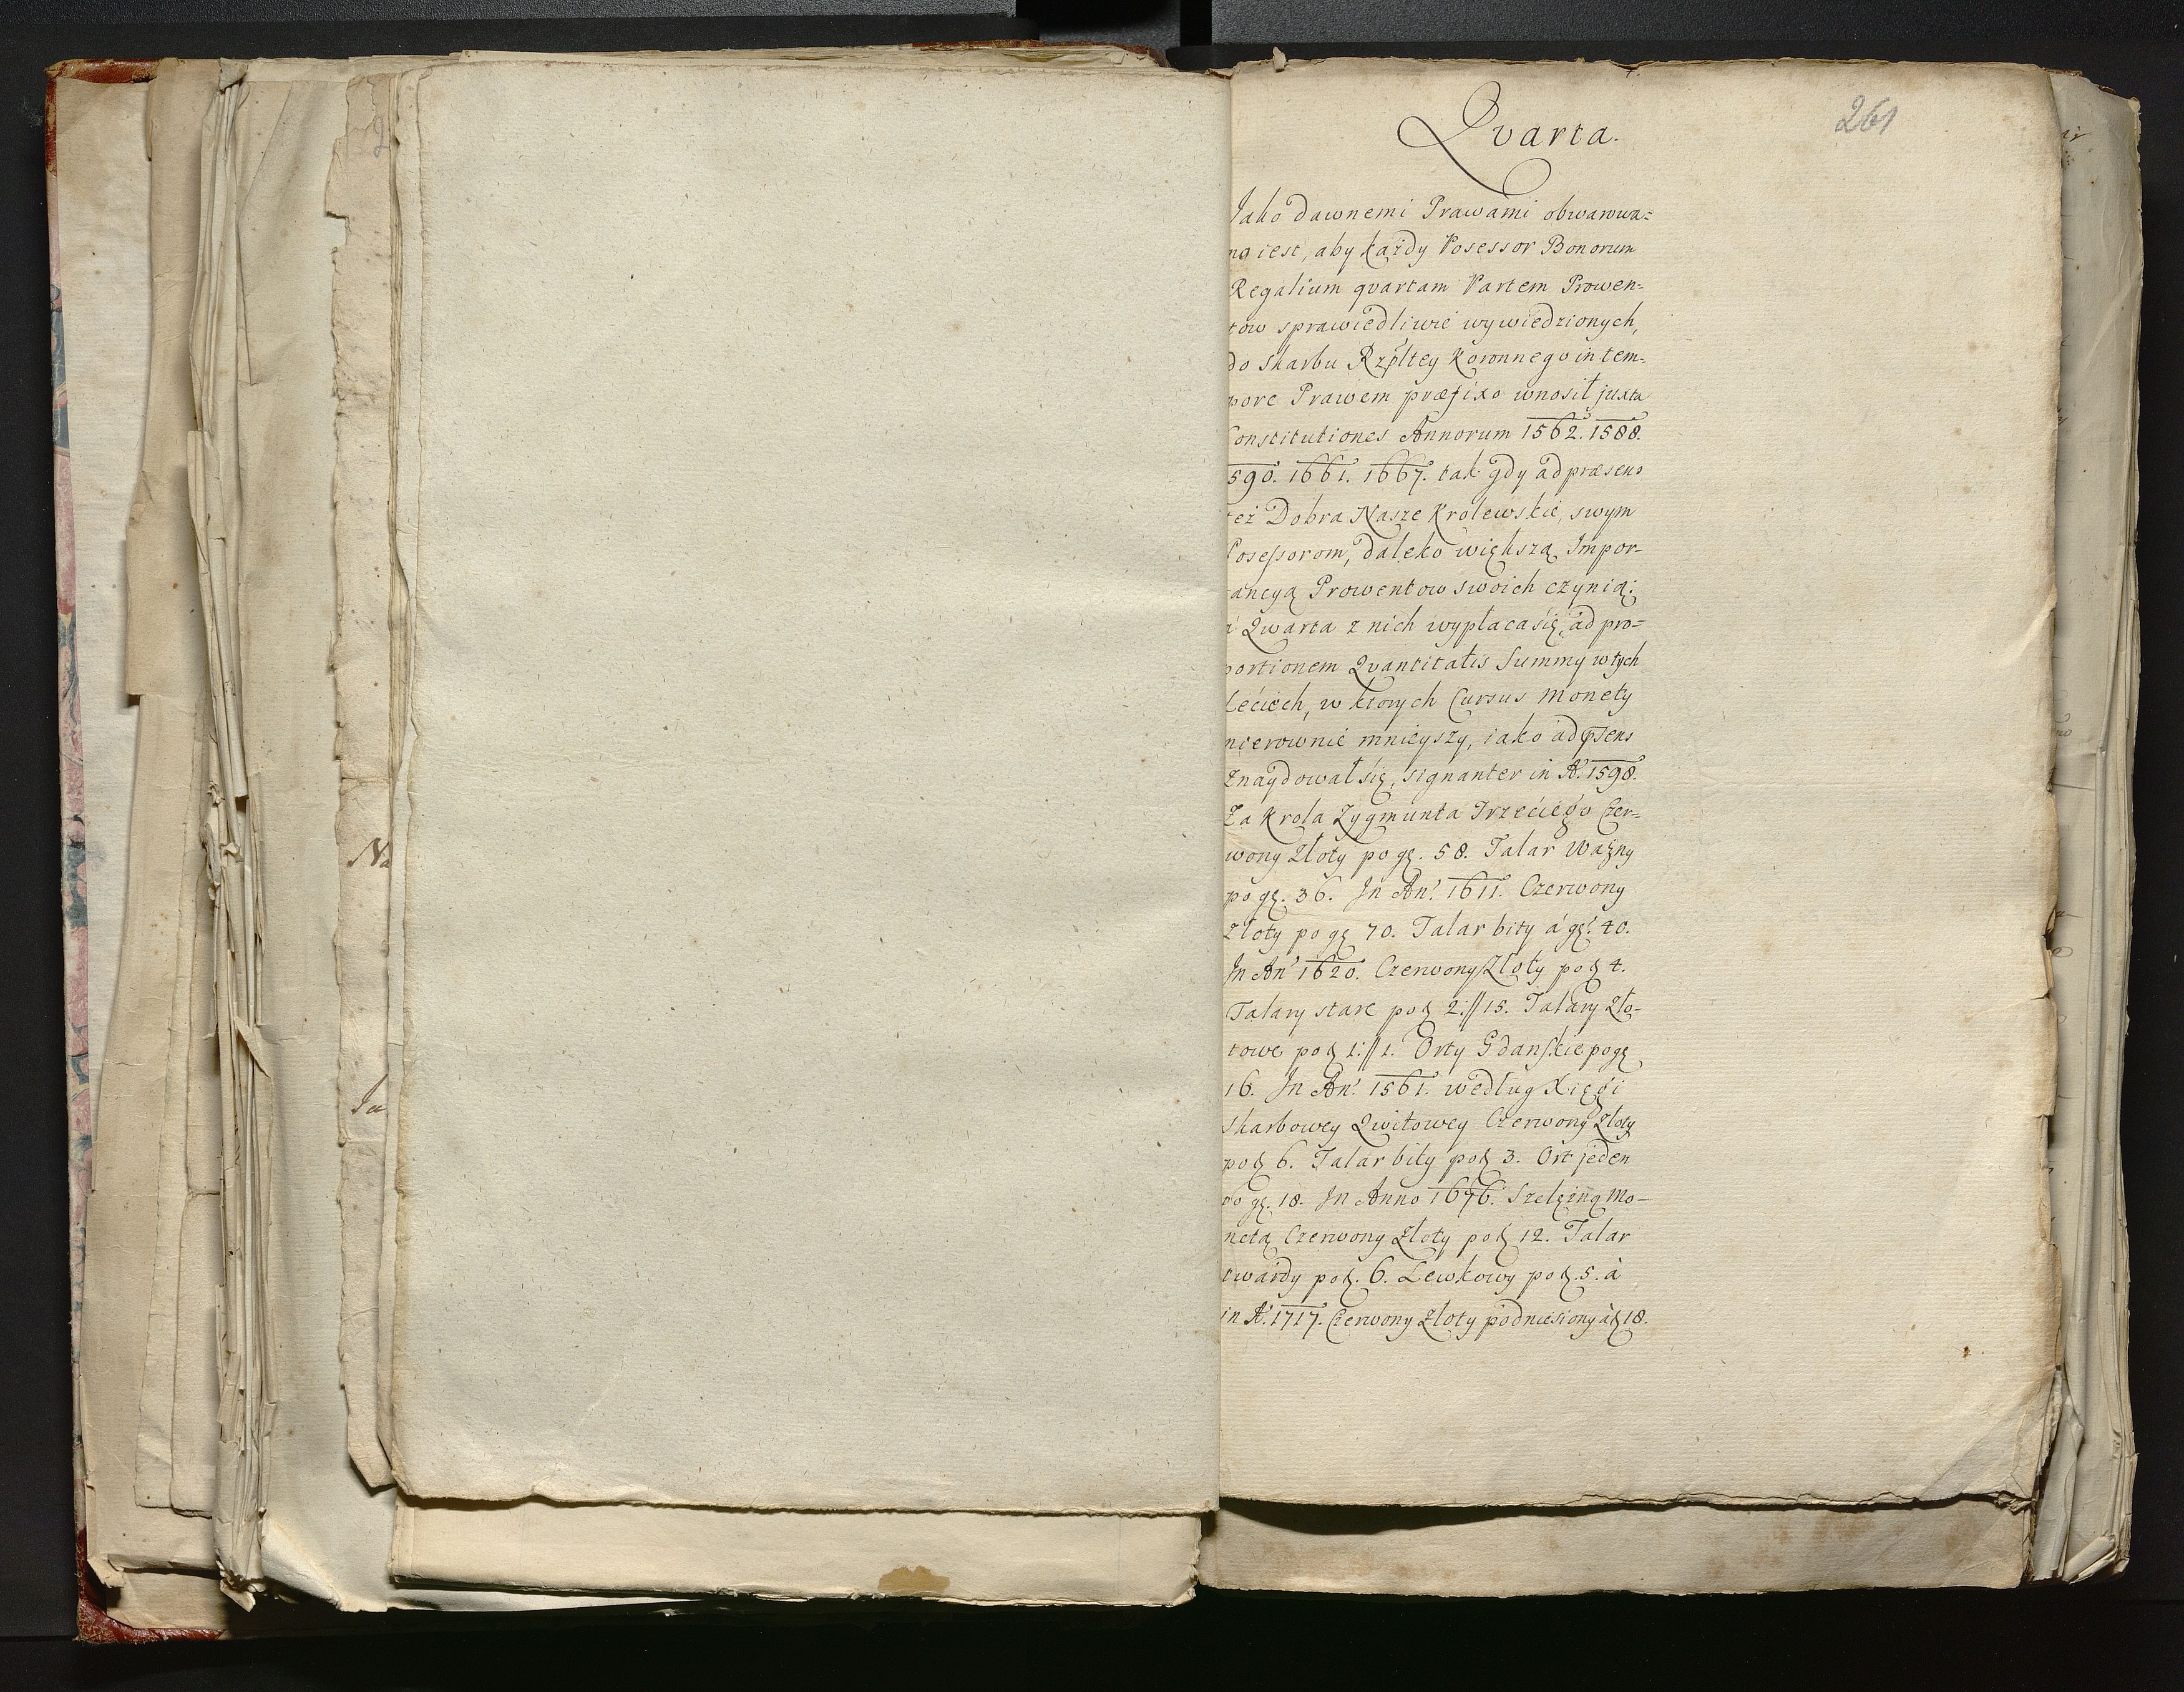 261
Qvarta.
Jako dawnemi Prawami obwarowa=
no iest, aby każdy Posessor Bonorum
Regalium qvartam Partem Prowen-
tow sprawiedliwie wywiedzionych,
do Skarbu Rzpltey Koronnego in tem-
pore Prawem præfixo wnosił juxta
Constitutiones Annorum 1562. 1588.
590. 1661. 1667. tak gdy ad præsens
też Dobra Nasze Krolewskie, swym
Posessorom, daleko większą Impor-
tancyą Prowentow swoich czynią;
á Qwarta z nich wypłaca się, ad pro=
portionem Qvantitatis Summy w tych
Leciech, w ktorych Cursus Monety
nierownie mnieyszy, iako ad psens
Znaydował się, signanter in Ao. 1598.
Za Krola Zygmunta Trzeciego Czer=
wony Złoty po gę. 58. Talar Ważny
po gę. 36. In Ano. 1611. Czerwony
Złoty po gę 70. Talar bity á gę. 40.
In Ano 1620. Czerwony Złoty po zł 4.
Talary stare po zł 2.//15. Talary Zło-
towe po zł 1.//1. Orty Gdańskie po gę
16. In Ano. 1561. według Xięgi
Skarbowey Qwitowey Czerwony Złoty
po zł 6. Talar bity po zł 3. Ort jeden
po gę. 18. In Anno 1676. Szelężną Mo-
netą Czerwony Złoty po zł 12. Talar
twardy po zł. 6. Lewkowy po zł. 5. à
in Ao. 1717. Czerwony Złoty podniesiony à zł 18.